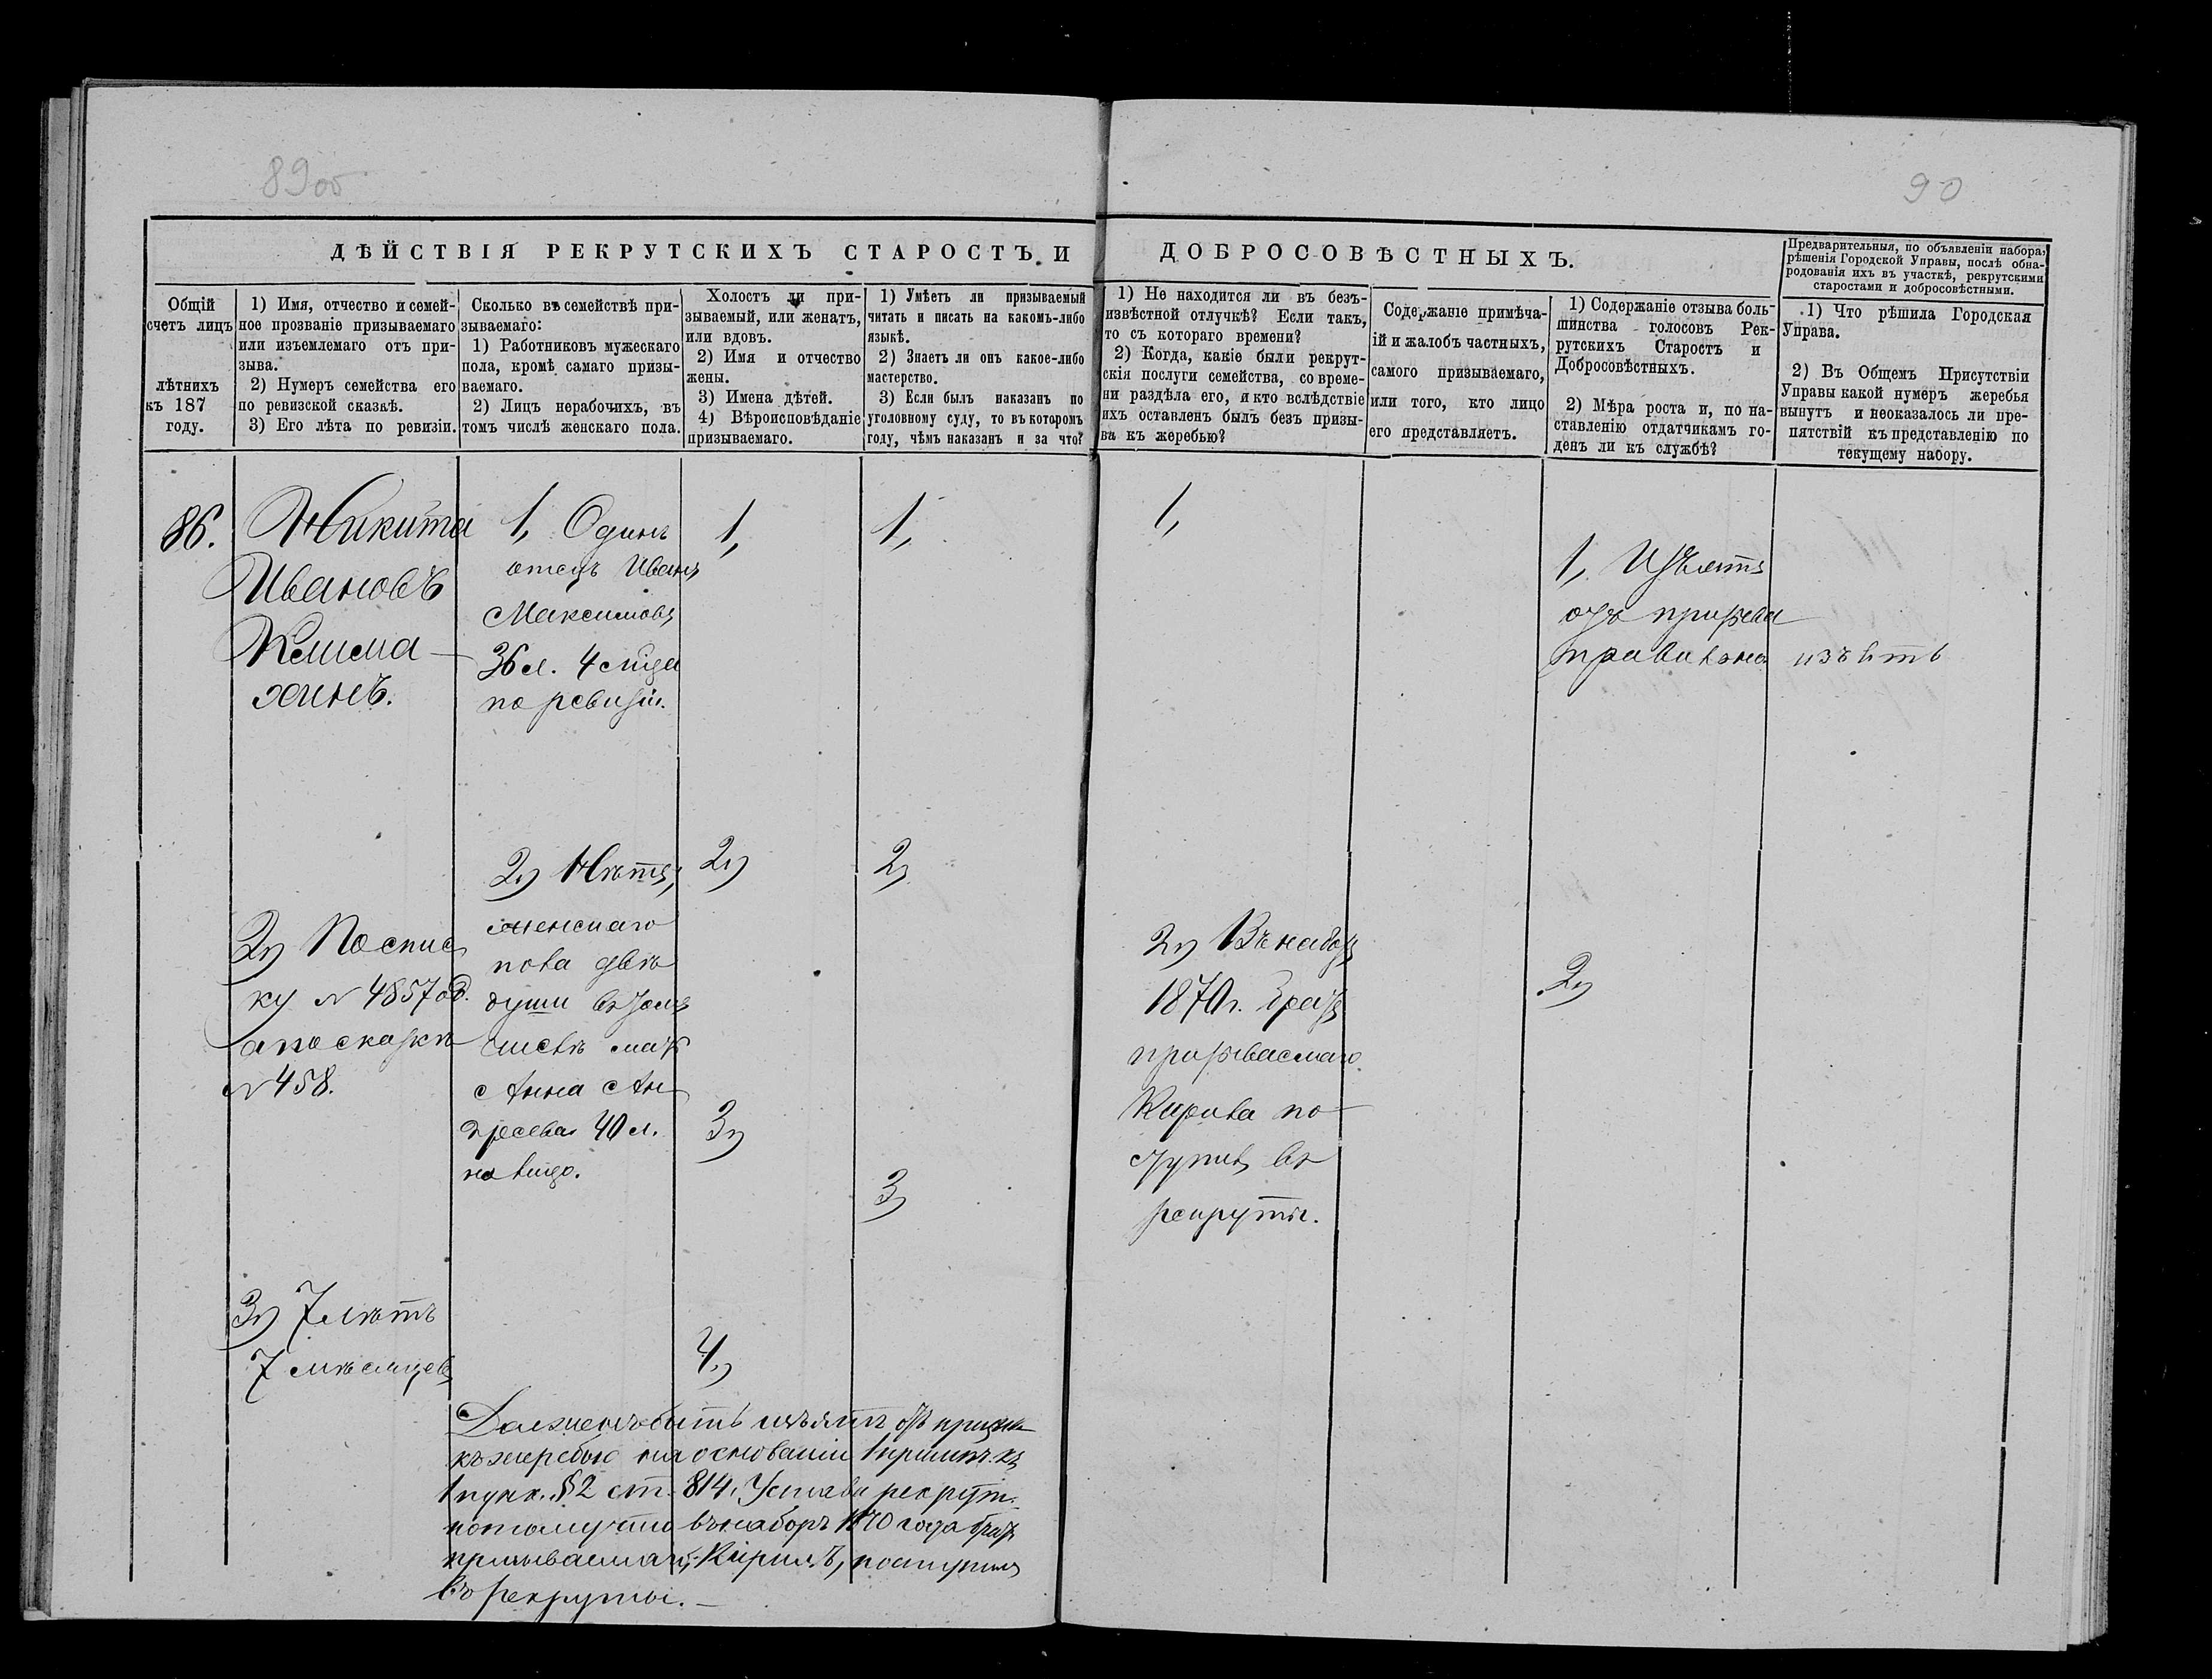 89об
90
ДѢЙСТВІЯ РЕКРУТСКИХЪ СТАРОСТЪ И
ДОБРОСОВѢСТНЫХЪ.
Предварительныя, по объявленіи набора,
рѣшенія Городской Управы, послѣ обна-
родованія ихъ въ участкѣ, рекрутскими
старостами и добросовѣстными.
Общій
счетъ лицъ
лѣтнихъ
къ 187
году.
1) Имя, отчество и семей-
ное прозваніе призываемаго
или изъемлемаго отъ при-
зыва.
2) Нумеръ семейства его
по ревизской сказкѣ.
3) Его лѣта по ревизіи.
Сколько въ семействѣ при-
зываемаго:
1) Работниковъ мужескаго
пола, кромѣ самаго призы-
ваемаго.
2) Лицъ нерабочихъ, въ
томъ числѣ женскаго пола.
Холостъ ли при-
зываемый, или женатъ,
или вдовъ.
2) Имя и отчество
жены.
3) Имена дѣтей.
4) Вѣроисповѣданіе
призываемаго.
1) Умѣетъ ли призываемый
читать и писать на какомъ-либо
языкѣ.
2) Знаетъ ли онъ какое-либо
мастерство.
3) Если былъ наказанъ по
уголовному суду, то въ которомъ
году, чѣмъ наказанъ и за что?
1) Не находится ли въ безъ-
извѣстной отлучкѣ? Если такъ,
то съ котораго времени?
2) Когда, какіе были рекрут-
скія послуги семейства, со време-
ни раздѣла его, и кто вслѣдствіе
ихъ оставленъ былъ безъ призы-
ва къ жеребью?
Содержаніе примѣча-
ій и жалобъ частныхъ,
самого призываемаго,
или того, кто лицо
его представляетъ.
1) Содержаніе отзыва боль-
шинства голосовъ Рек-
рутскихъ Старостъ и
Добросовѣстныхъ.
2) Мѣра роста и, по на-
ставленію отдатчикамъ го-
денъ ли къ службѣ?
1) Что рѣшила Городская
Управа.
2) Въ Общемъ Присутствіи
Управы какой нумеръ жеребья
вынутъ и неоказалось ли пре-
пятствій къ представленію по
текущему набору.
86.
Никита
Ивановъ
Клима-
хинъ.
2) По спис
ку № 4857 об.
а по сказкѣ
№ 458.
3) 7 лѣтъ
7 мѣсяцевъ
1, Одинъ
отецъ Иванъ
Максимовъ
36 л. 4 мѣца
по ревизіи.
2) Нѣтъ,
женскаго
пола двѣ
души въ томъ
числѣ мать
Анна Ан
дреева 40 л.
на лицо.
1,
2)
3)
4)
1,
2)
3)
1,
2) Въ наборъ
1870 г. братъ
призываемаго
Кирила по-
ступилъ въ
рекруты.
1, Изъятъ
отъ призыва
правильно
2)
изъять
Долженъ быть изъятъ отъ призыва
къ жеребью на основаніи 1 примѣч. къ
1 пунк. § 2 ст. 814. Устава рекрут.
потому что въ наборъ 1870 года братъ
призываемаго, Кирилъ, поступилъ
въ рекруты.